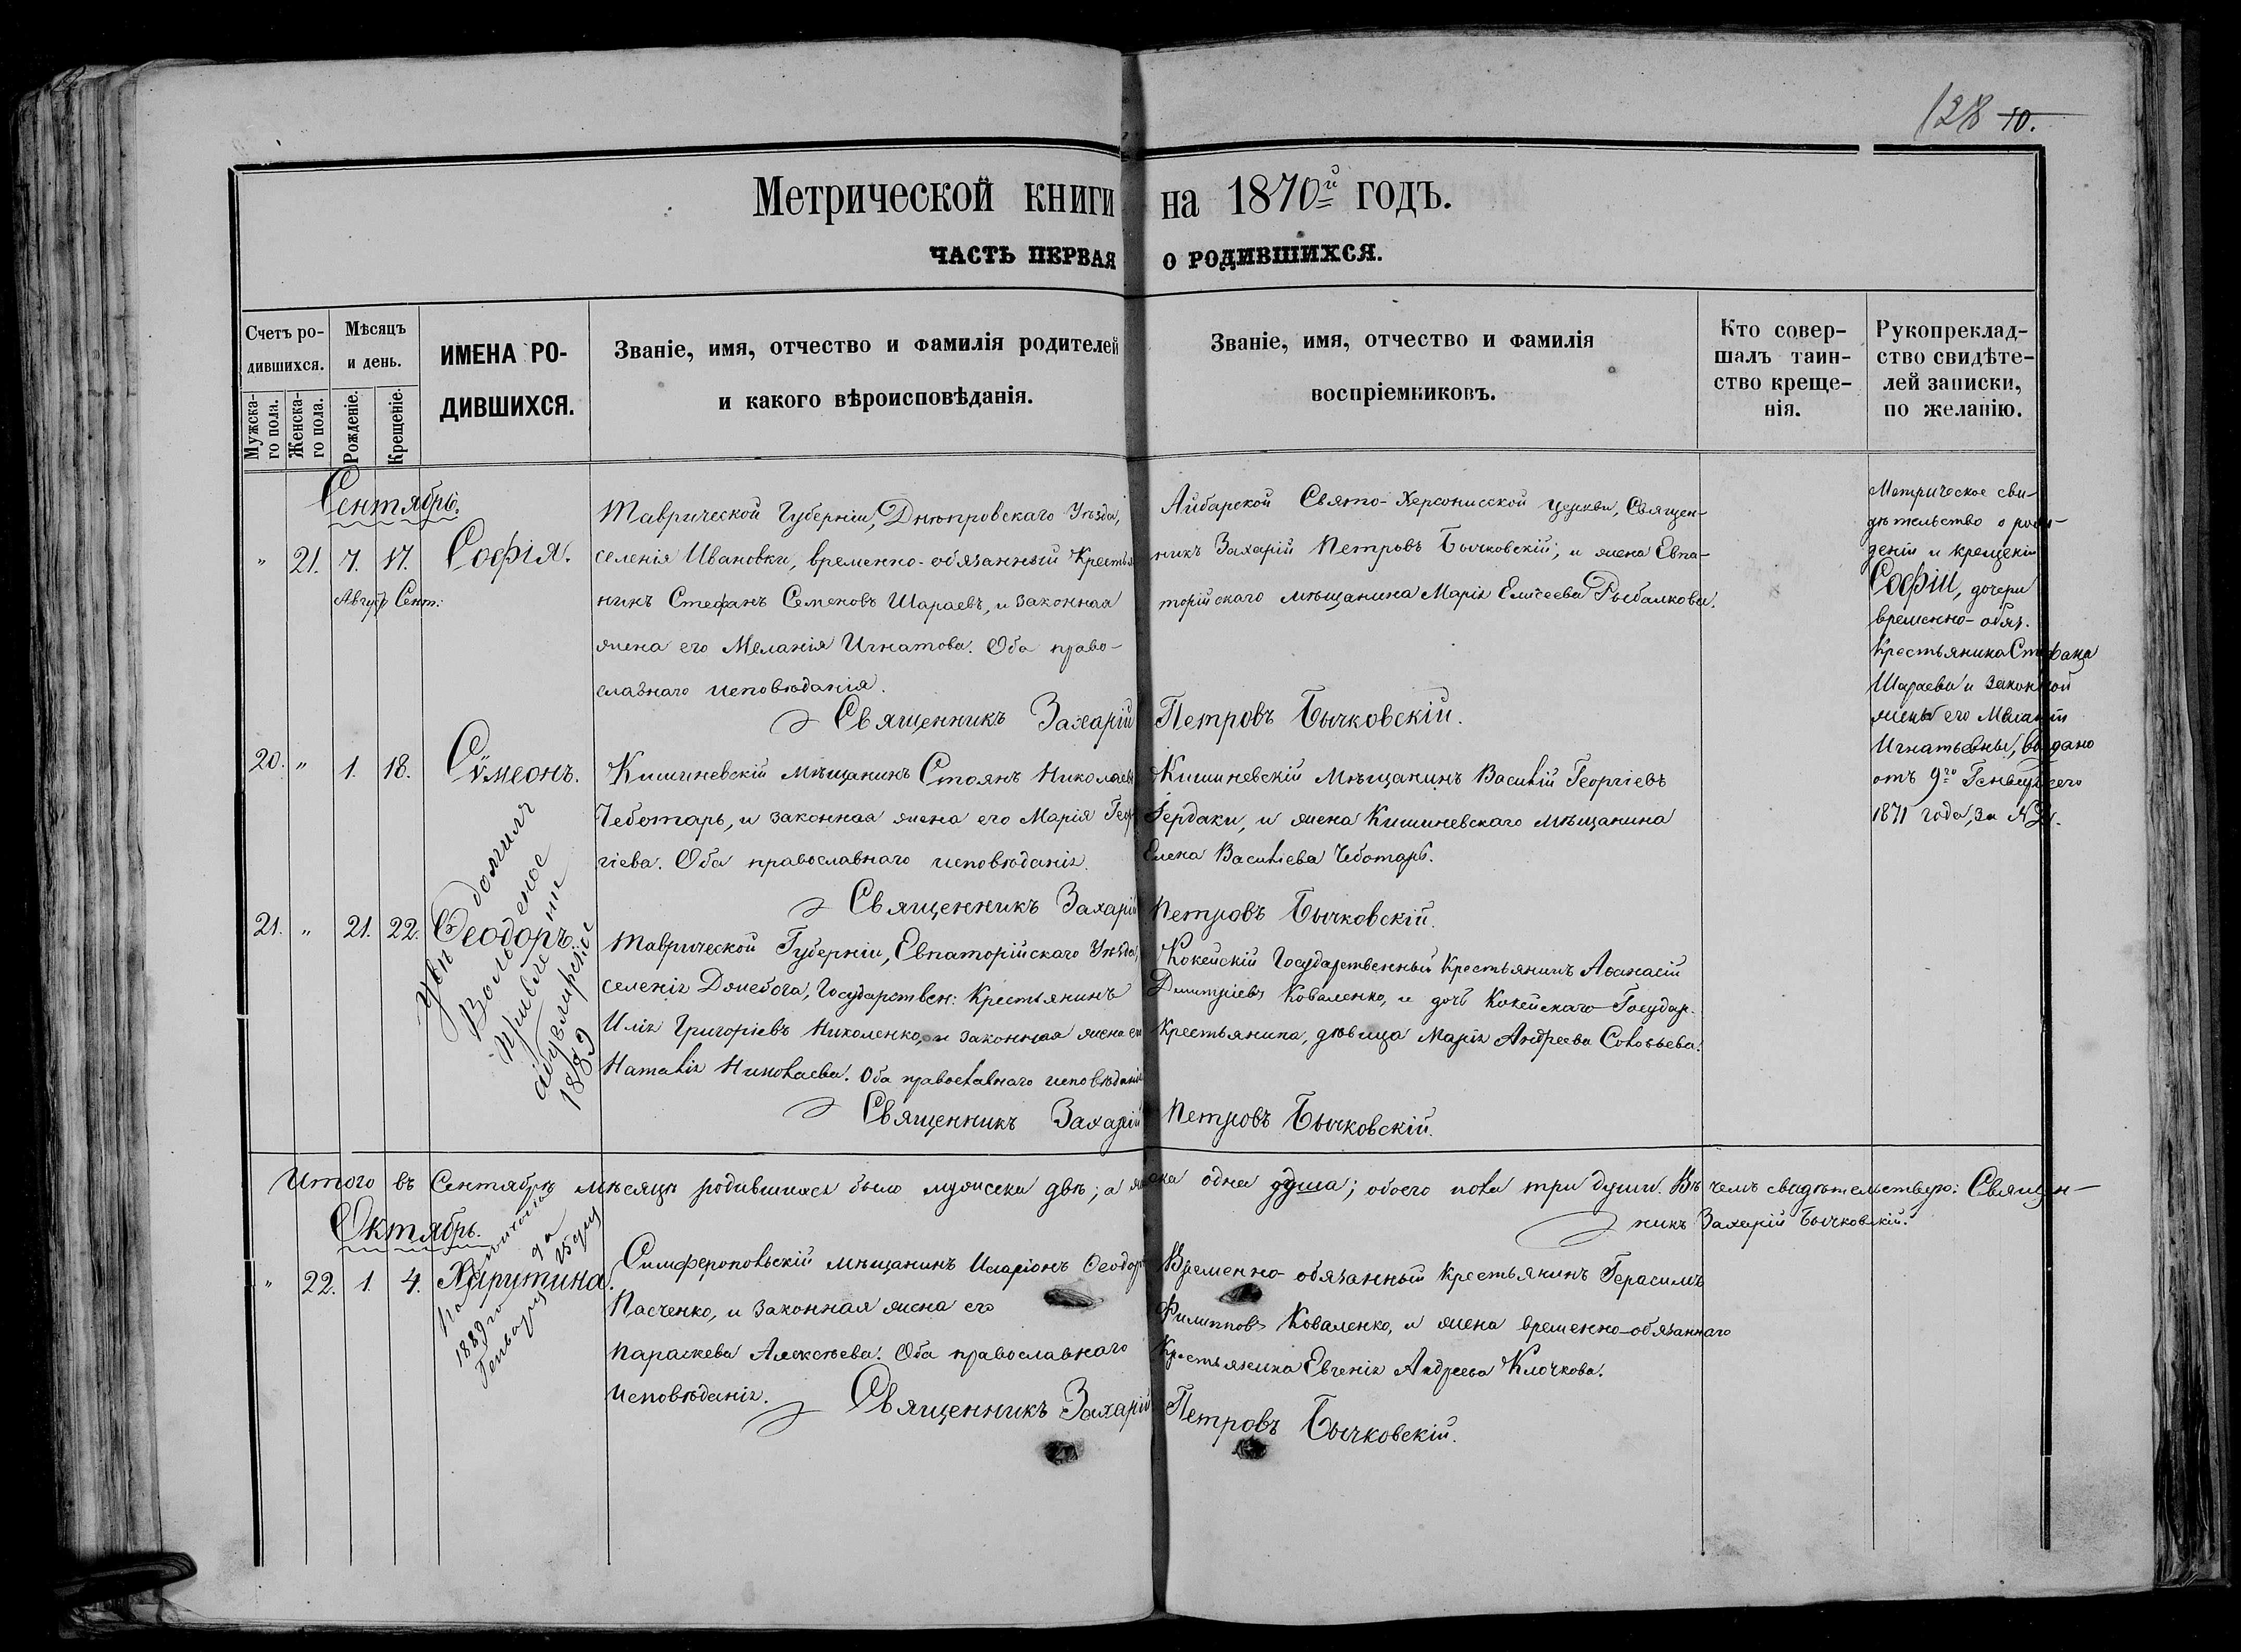 128 10.
Метрической книги на 1870й годъ.
ЧАСТЬ ПЕРВАЯ О РОДИВШИХСЯ.
Счетъ ро-
дившихся.
Мужска-
го пола.
Женска-
го пола.
Мѣсяцъ
и день.
Рожденіе.
Крещеніе.
ИМЕНА РО-
ДИВШИХСЯ.
Званіе, имя, отчество и фамилія родителей
и какого вѣроисповѣданія.
Званіе, имя, отчество и фамилія
воспріемниковъ.
Кто совер-
шалъ таин-
ство креще-
нія.
Рукопреклад-
ство свидѣте-
лей записки,
по желанію.
Сентябрь.
" 21. 7. 17. Софія.
Августъ Сент:
Таврической Губерніи, Днѣпровскаго Уѣзда,
селенія Ивановки, временно-обязанный Крестья
никъ Стефанъ Семеновъ Шараевъ, и законная
жена его Меланія Игнатова. Оба право-
славнаго исповѣданія.
Айбарской Свято-Херсонисской церкви, Священ-
никъ Захарій Петровъ Бычковскій; и жена Евпа-
торійскаго мѣщанина Марія Елисеева Рыбалкова.
Священникъ Захарій Петровъ Бычковскій.
Метрическое сви-
дѣтельство о рож-
деніи и крещеніи
Софіи, дочери
временно-обяз.
Крестьянина Стефана
Шараева и законной
жены его Меланіи
Игнатьевны, выдано
отъ 9го Генваря сего
1871 года, за №
20. " 1. 18. Сѵмеонъ.
Кишиневскій мѣщанинъ Стоянъ Николаевъ
Чеботарь, и законная жена его Марія Геор
гіева. Оба православнаго исповѣданія.
Кишиневскій Мѣщанинъ Василій Георгіевъ
Гердаки, и жена Кишиневскаго мѣщанина
Елена Василіева Чеботарь.
Священникъ Захарій Петровъ Бычковскій.
21. " 21. 22. Ѳеодоръ.
1889
Таврической Губерніи, Евпаторійскаго Уѣзда,
селенія Джебога, Государствен: Крестьянинъ
Илія Григоріевъ Николенко, и законная жена его
Наталія Николаева. Оба православнаго исповѣданія
Кокейскій Государственный Крестьянинъ Аѳанасій
Димитріевъ Коваленко, и дочь Кокейскаго Государ.
Крестьянина, дѣвица Марія Андреева Соловьева.
Священникъ Захарій Петровъ Бычковскій.
Итого въ Сентябрѣ мѣсяцѣ родившихся было мужеска двѣ; а женска одна душа; обоего пола три души. Въ чемъ свидѣтельствую: Священ-
никъ Захарій Бычковскій.
Октябрь.
" 22. 1. 4. Харитина.
1889го
Генваря 25 дня
Симферопольскій мѣщанинъ Иларіонъ Ѳеодор
Пасченко, и законная жена его
Параскева Алексѣева. Оба православнаго
исповѣданія.
Временно-обязанный крестьянинъ Герасимъ
Филипповъ Коваленко, и жена временно-обязаннаго
Крестьянина Евгенія Андреева Клочкова.
Священникъ Захарій Петровъ Бычковскій.